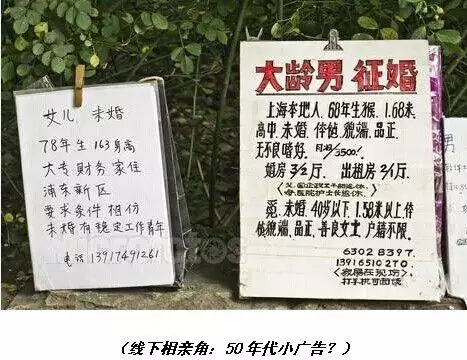 女儿 未婚
78年生 163身高
大专 财务 家住
浦东新区
要求条件相仿
未婚有稳定工作青年
电话 13917491261
大龄男 征婚
上海本地人、68年生猴、1.68米、
高中、未婚、体健、貌端、品正、
无不良嗜好。月租/3500!
婚房3/2厅 出租房2/1厅
父、国企政工干部退休、
母、医院护士长退休。
觅、未婚、40岁以下、1.58米以上、体
健貌端、品正、善良女士、户籍不限。
63028397.
13916510270
打手机可面谈
(线下相亲角：50年代小广告？)